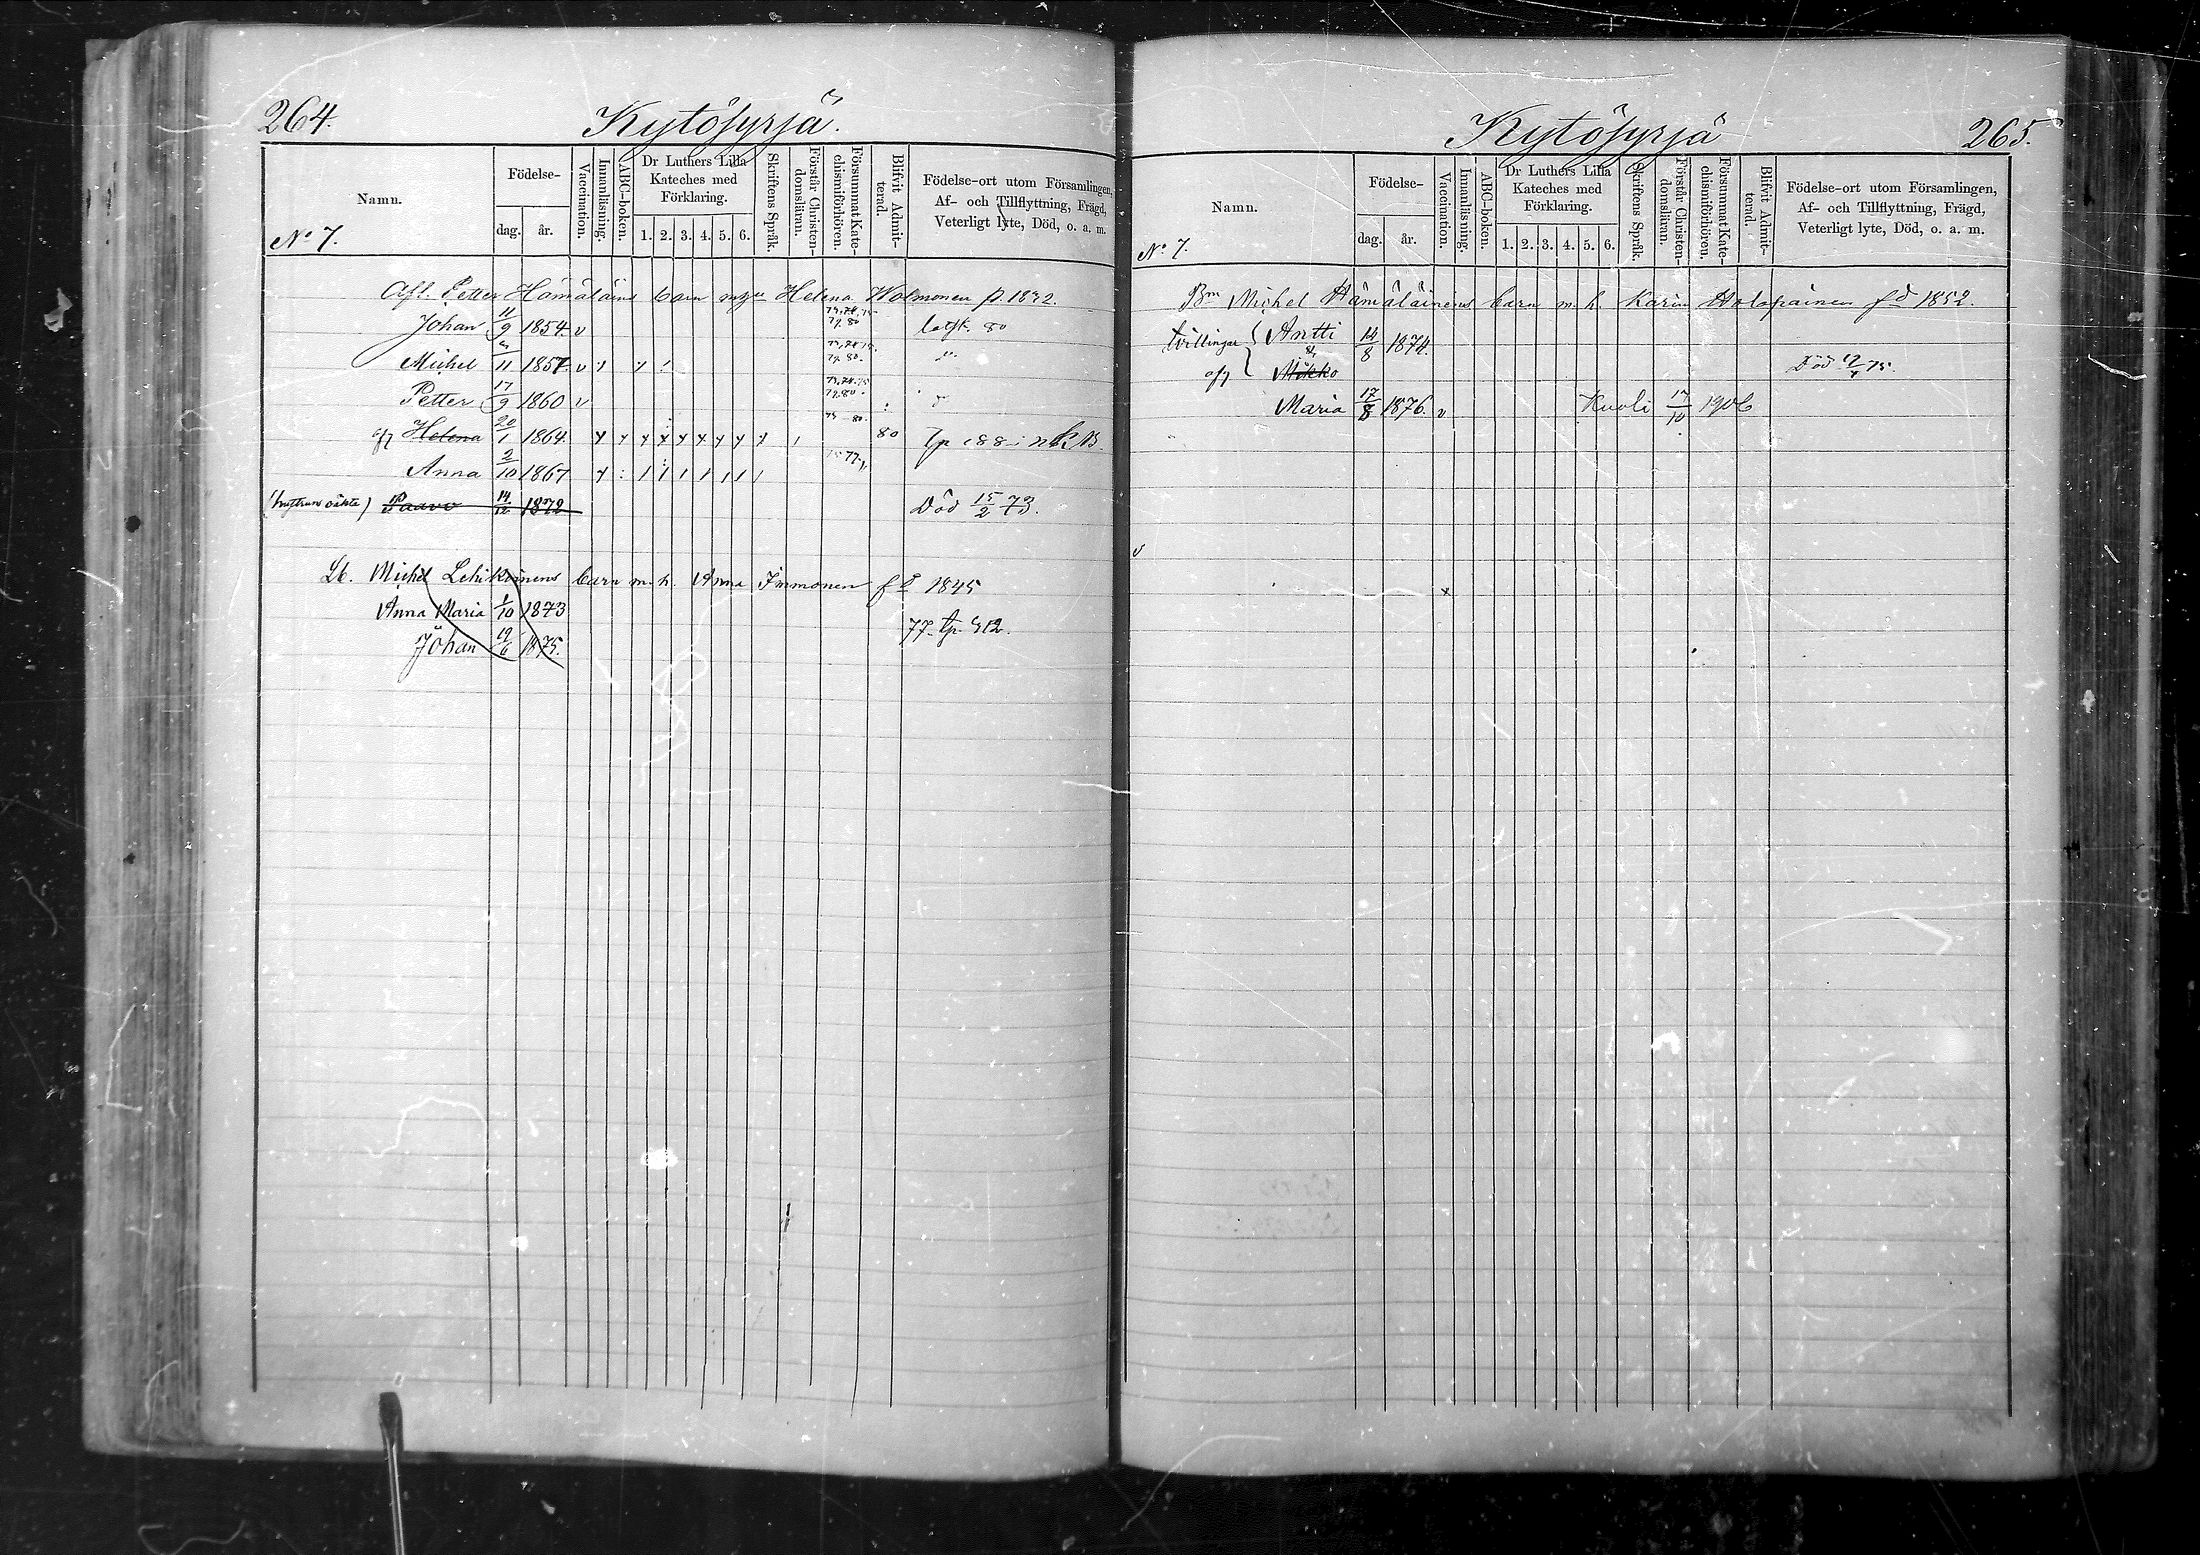 264.
Kytösyrjä.
Namn.
Födelse-
dag. år.
Vaccination.
Innanläsning.
ABC-boken.
Dr Luthers Lilla
Kateches med
Förklaring.
1. 2. 3. 4. 5. 6.
Skriftens Språk.
Förstår Christen-
domsläran.
Försummat Kate-
chismiförhören.
Blifvit Admit-
terad.
Födelse-ort utom Församlingen,
Af- och Tillflyttning, Frägd,
Veterligt lyte, Död, o. a. m.
No 7.
Afl. Petter Hämäläins barn Helena
Johan 11/9 1854 v 80
Michel 11 1857 v
Petter 17/9 1860 v
Helena 20/1 1864 80
Anna 2/10 1867
Paavo 14/12 1872 Död 15/2 73.
Lb. Michel Lehikoinens barn m. h. Anna Immonen fd 1845
Anna Maria 1/10 1873
77. tp. 912.
Johan 19/6 1875.
Kytösyrjä
265.
Namn.
Födelse-
dag. år.
Vaccination.
Innanläsning.
ABC-boken.
Dr Luthers Lilla
Kateches med
Förklaring.
1. 2. 3. 4. 5. 6.
Skriftens Språk.
Förstår Christen-
domsläran.
Försummat Kate-
chismiförhören.
Blifvit Admit-
terad.
Födelse-ort utom Församlingen,
Af- och Tillflyttning, Frägd,
Veterligt lyte, Död, o. a. m.
No 7.
Bm Michel Hämäläinens barn m. h. Karin Holopainen fd 1852.
tvillingar Antti 14/8 1874.
Mikko Död 75.
Maria 17/8 1876. v Kuoli 17/10 1906